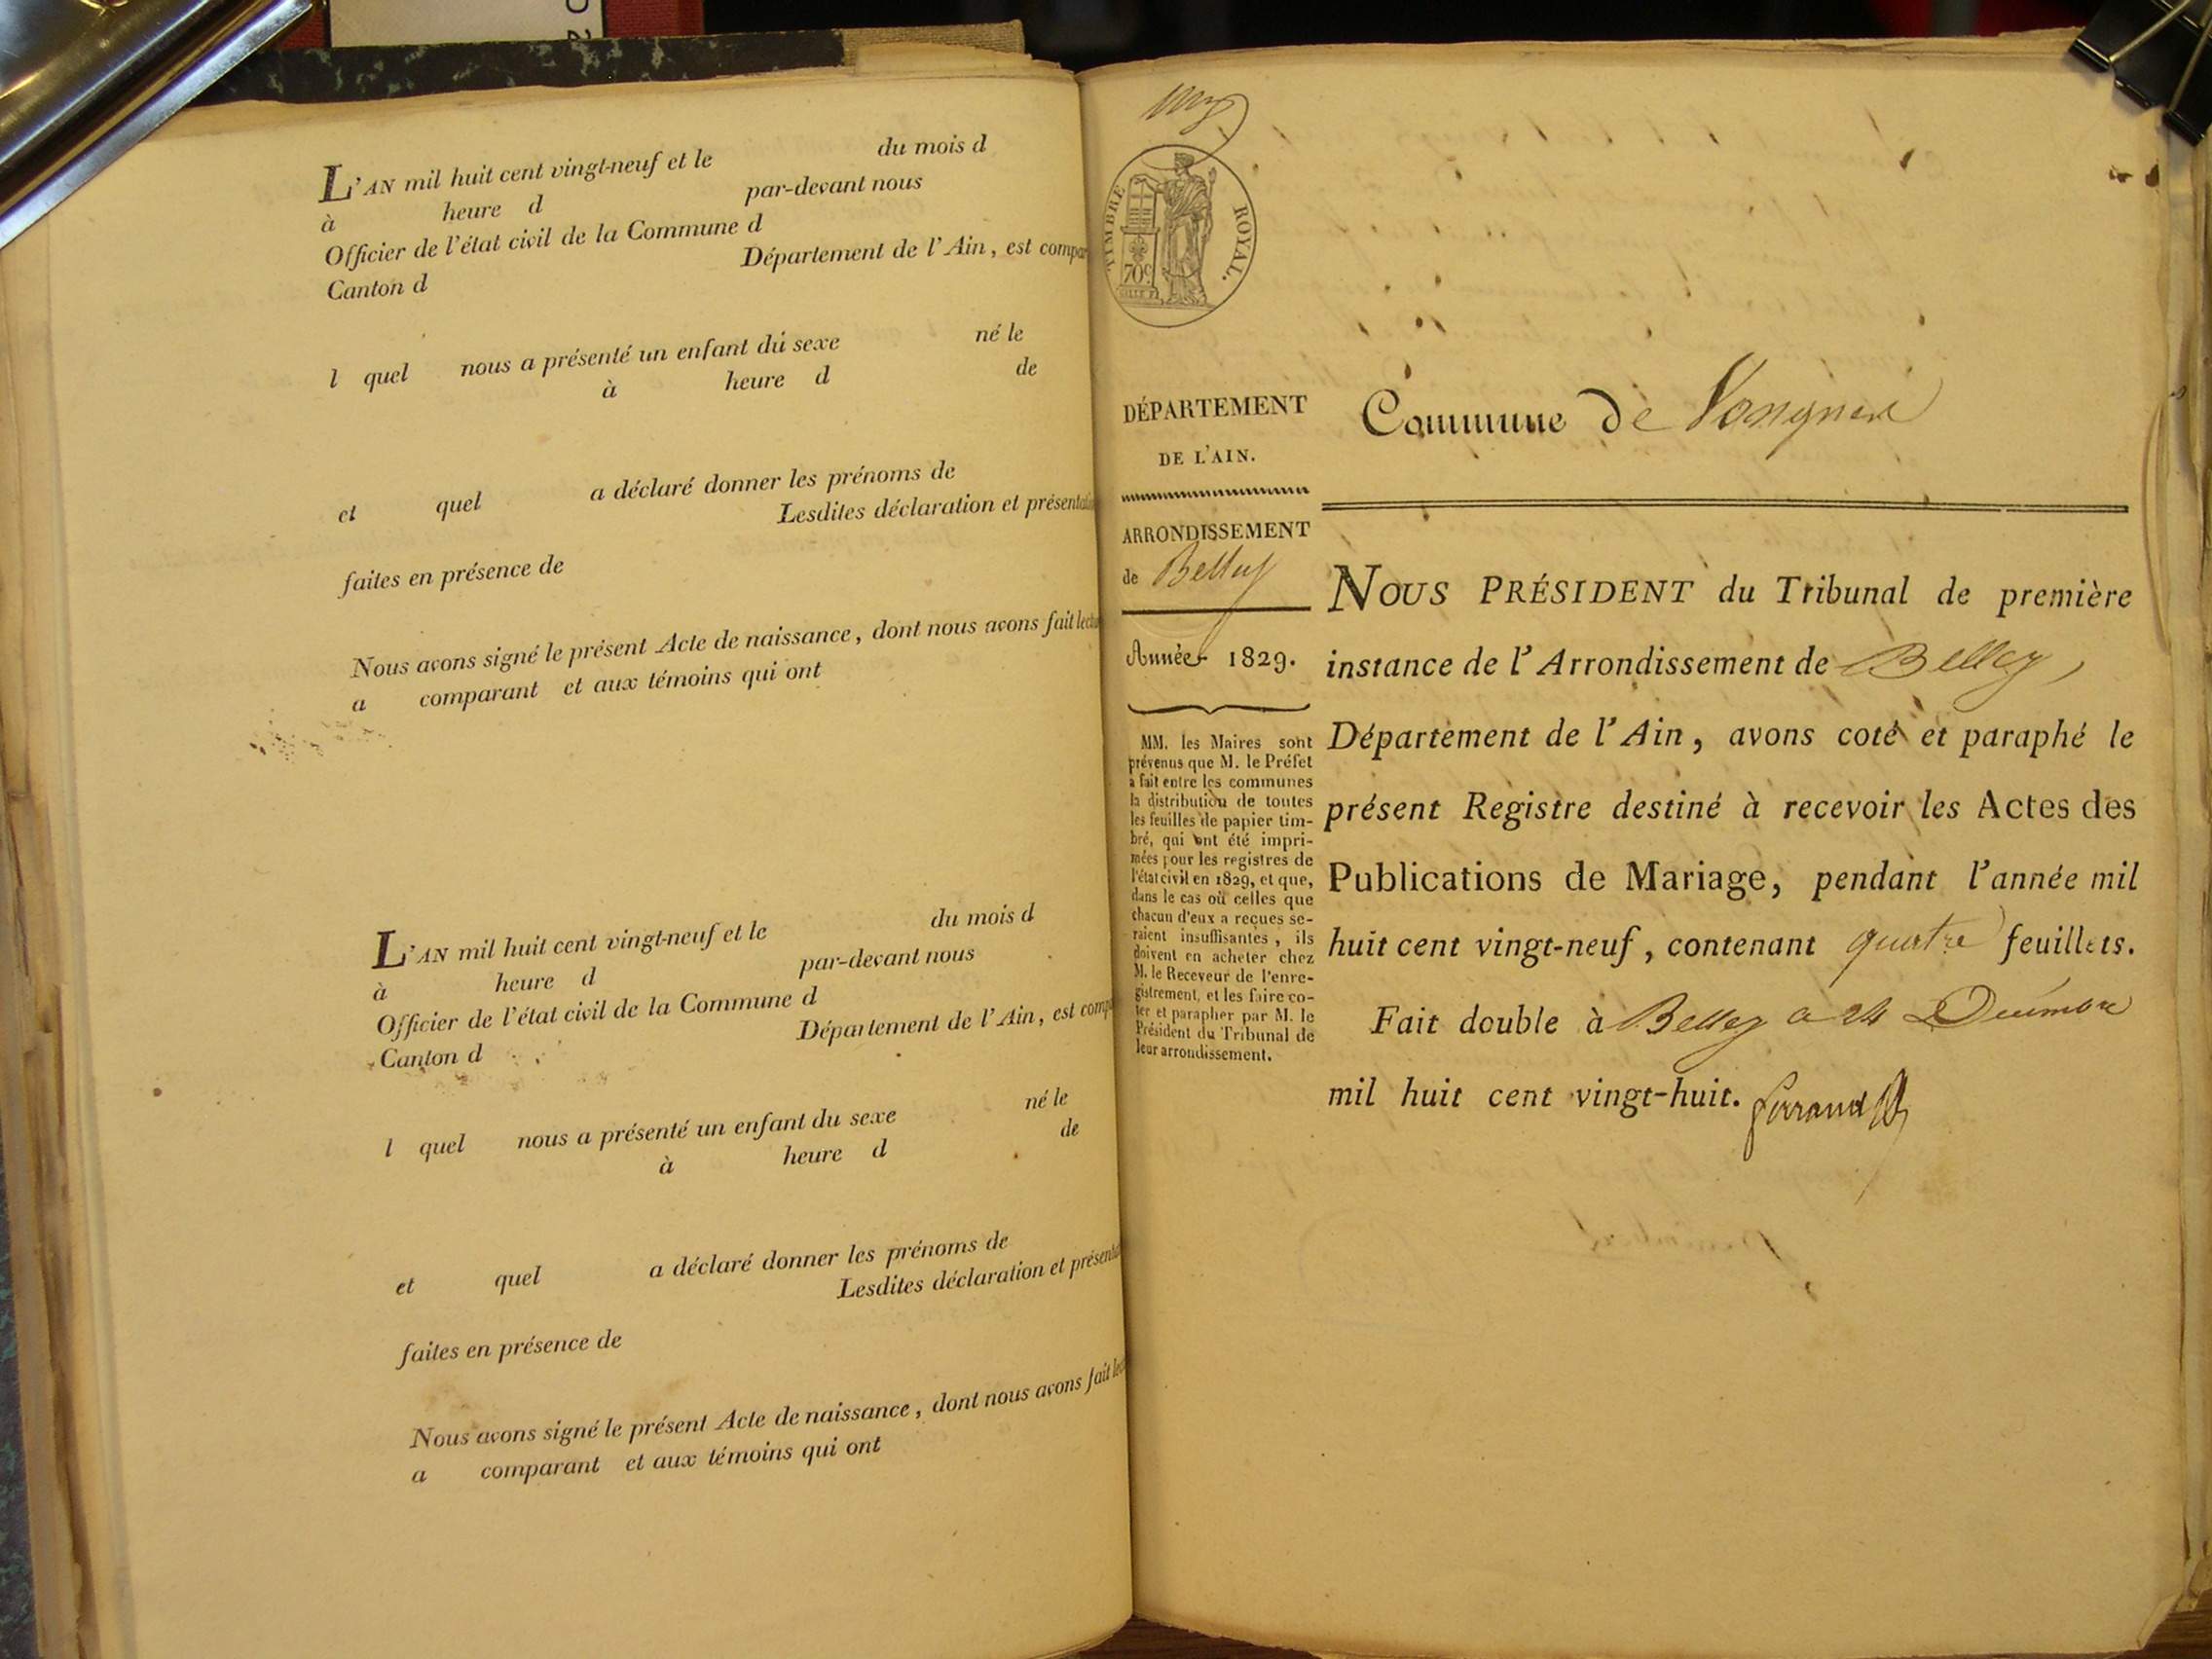 L'AN mil huit cent vingt-neuf et le du mois d
à heure d par-devant nous
Officier de l'état civil de la Commune d
Canton d Département de l'Ain, est compar
l quel nous a présenté un enfant du sexe né le
à heure d de
et quel a déclaré donner les prénoms de
Lesdites déclaration et présentation
faites en présence de
Nous avons signé le présent Acte de naissance, dont nous avons fait lectu
a comparant et aux témoins qui ont
L'AN mil huit cent vingt-neuf et le du mois d
à heure d par-devant nous
Officier de l'état civil de la Commune d
Canton d Département de l'Ain, est comp
l quel nous a présenté un enfant du sexe né le
à heure d de
et quel a déclaré donner les prénoms de
Lesdites déclaration et présenta
faites en présence de
Nous avons signé le présent Acte de naissance, dont nous avons fait lec
a comparant et aux témoins qui ont
TIMBRE ROYAL.
70c.
DÉPARTEMENT
DE L'AIN.
ARRONDISSEMENT
de Belley
Année 1829.
MM. les Maires sont
prévenus que M. le Préfet
a fait entre les communes
la distribution de toutes
les feuilles de papier tim-
bré, qui ont été impri-
mées pour les registres de
l'état civil en 1829, et que,
dans le cas où celles que
chacun d'eux a reçues se-
raient insuffisantes, ils
doivent en acheter chez
M. le Receveur de l'enre-
gistrement, et les faire co-
ter et parapher par M. le
Président du Tribunal de
leur arrondissement.
Commune de Vongnes
NOUS PRÉSIDENT du Tribunal de première
instance de l'Arrondissement de Belley,
Département de l'Ain, avons coté et paraphé le
présent Registre destiné à recevoir les Actes des
Publications de Mariage, pendant l'année mil
huit cent vingt-neuf, contenant quatre feuillets.
Fait double à Belley a 24 Decembre
mil huit cent vingt-huit.